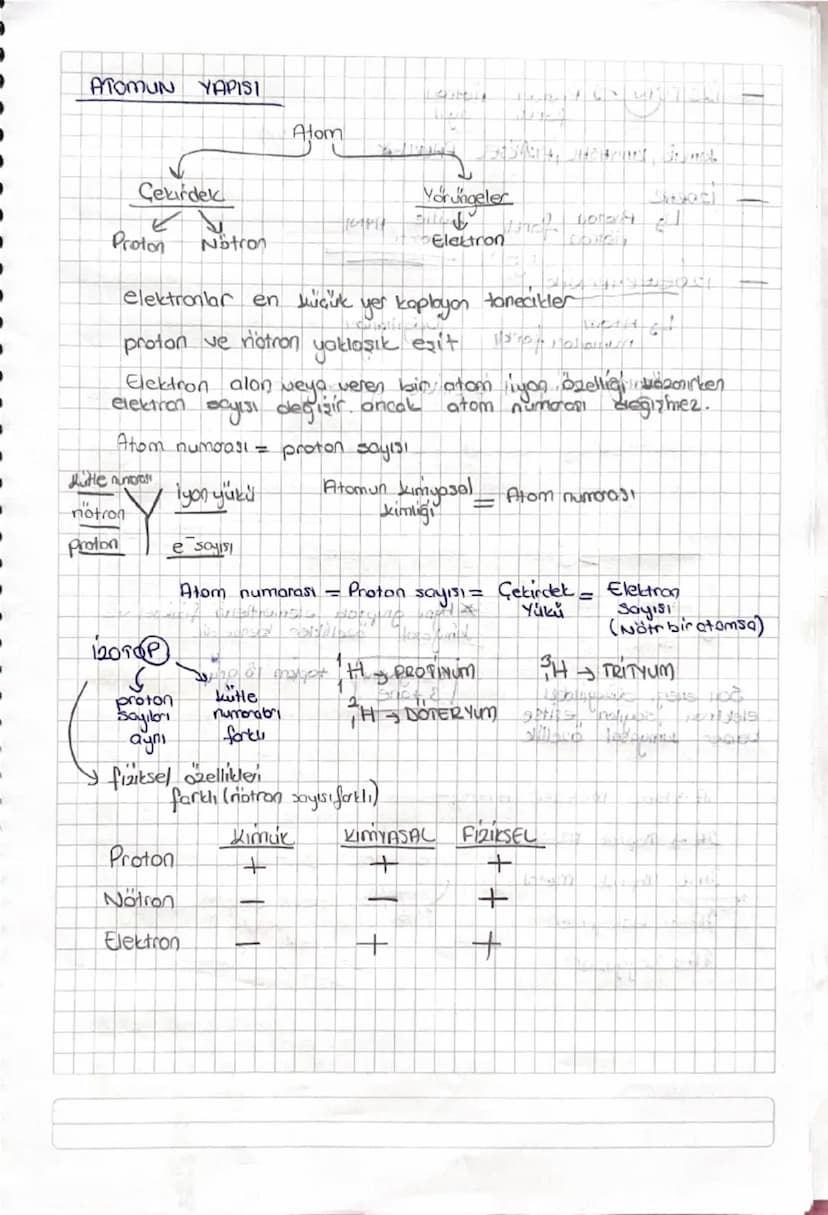 ATOMUN YAPISI
Atom
Çekirdek Yörüngeler
Proton Nötron Elektron
elektronlar en küçük yer kaplayan tanecikler
proton ve nötron yaklaşık eşit
Elektron alan veya veren bir atom iyon özelliği kazanırken
elektron sayısı değişir ancak atom numarası değişmez.
Atom numarası = proton sayısı
kütle numarası iyon yükü
nötron
proton e⁻ sayısı
Atomun kimyasal kimliği = Atom numarası
Atom numarası = Proton sayısı = Çekirdek Yükü = Elektron Sayısı
(Nötr bir atomsa)
İZOTOP
proton sayıları aynı
kütle numaraları farklı
¹₁H → PROTİNUM ³₁H → TRİTYUM
²₁H → DÖTERYUM
fiziksel özellikleri
farklı (nötron sayısı farklı)
KİMLİK KİMYASAL FİZİKSEL
Proton + + +
Nötron - - +
Elektron - + +